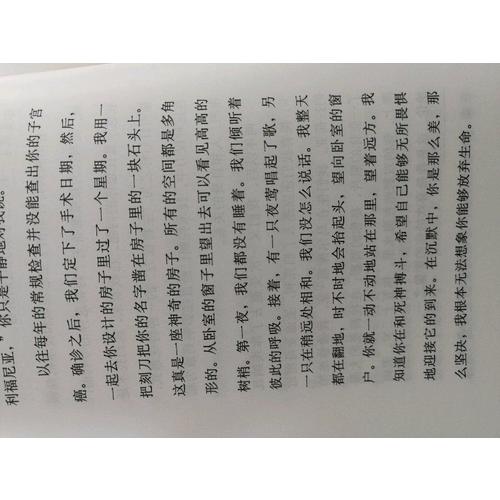 利福尼亚，”你只是平静地对我说。
以往每年的常规检查并没能查出你的子宫
癌。确诊之后，我们定下了手术日期，然后，
一起去你设计的房子里过了一个星期。我用一
把刻刀把你的名字凿在房子里的一块石头上。
这真是一座神奇的房子。所有的空间都是多角
形的。从卧室的窗子里望出去可以看见高高的
树梢。第一夜，我们都没有睡着。我们倾听着
彼此的呼吸。接着，有一只夜莺唱起了歌，另
一只在稍远处相和。我们没怎么说话。我整天
都在翻地，时不时地会抬起头，望向卧室的窗
户。你就一动不动地站在那里，望着远方。我
知道你在和死神搏斗，希望自己能够无所畏惧
地迎接它的到来。在沉默中，你是那么美，那
么坚决，我根本无法想象你能够放弃生命。